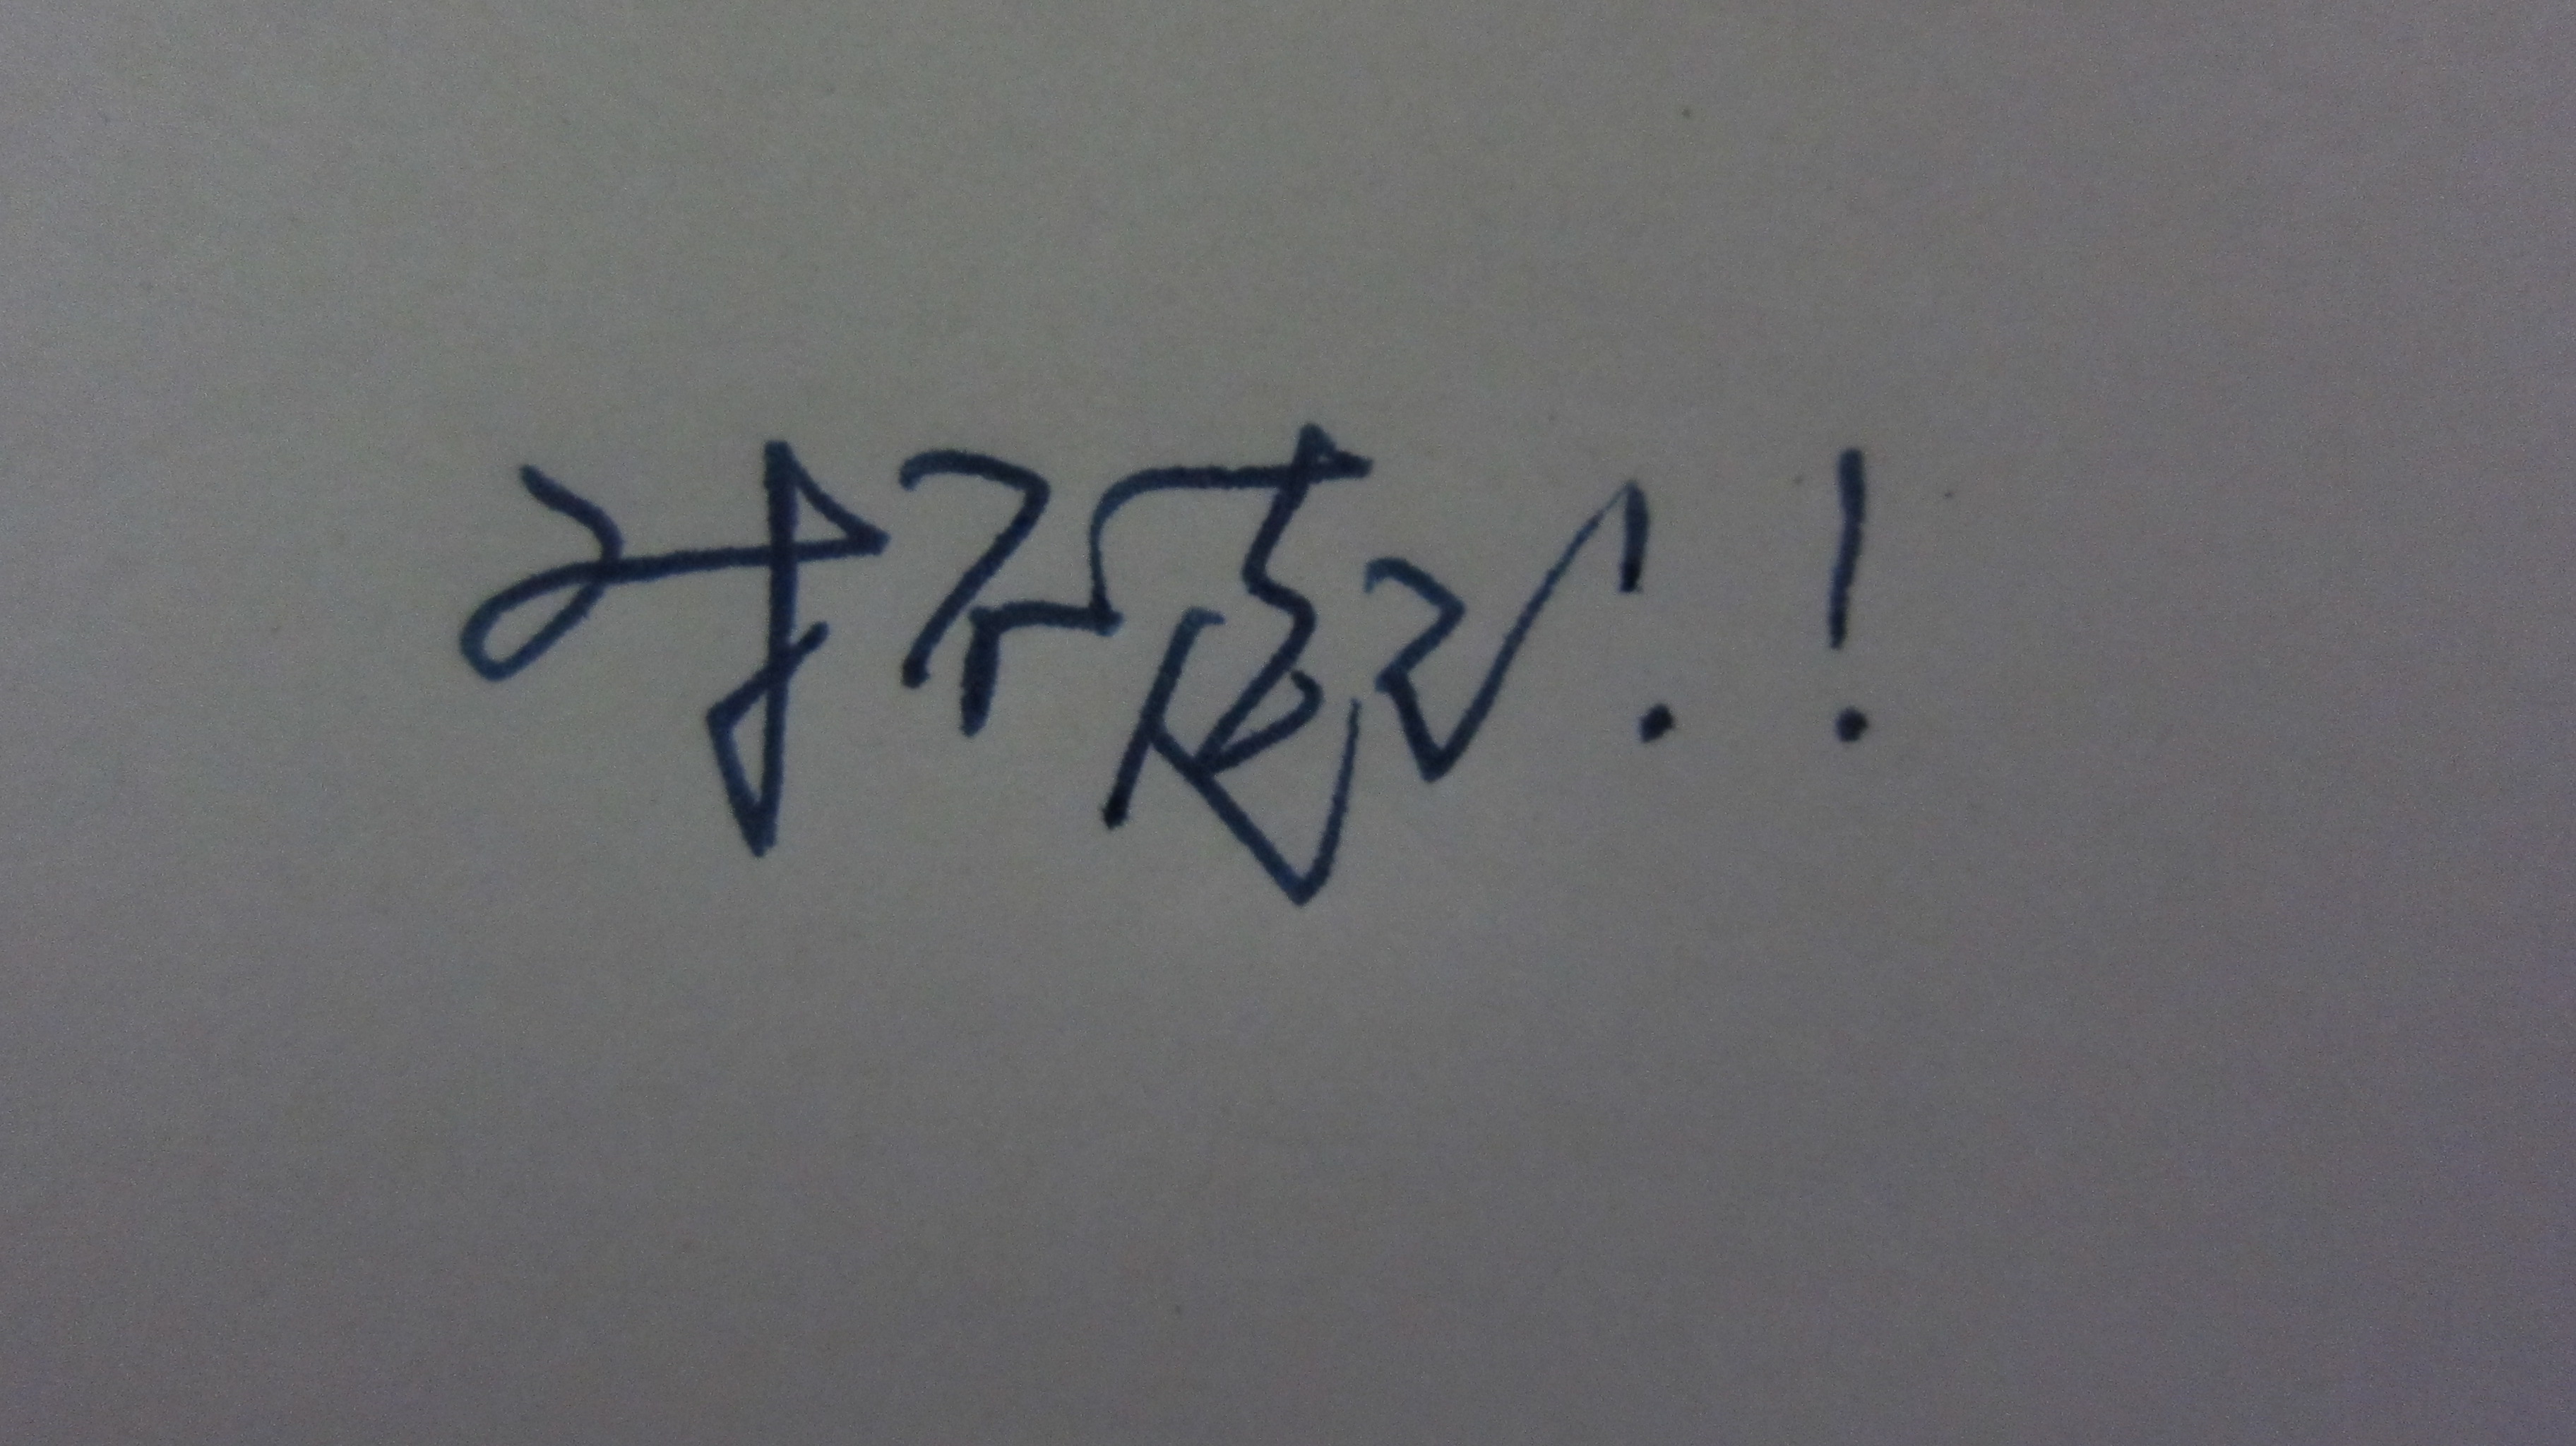 对不起!!